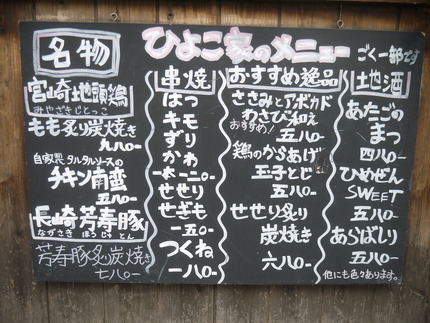 名物
ひよこ家のメニュー
ごく一部です
宮崎地頭鶏
みやざきじとっこ
もも炙り炭焼き
九八〇-
自家製タルタルソースの
チキン南蛮
五八〇-
長崎芳寿豚
ながさき ほうじゅ とん
芳寿豚炙り炭焼き
七八〇-
串焼
はつ
キモ
ずり
かわ
一本一二〇-
せせり
せぎも
一五〇-
つくね
一八〇-
おすすめ逸品
ささみとアボカド
わさび和え
おすすめ!
五八〇-
鶏のからあげ
玉子とじ
五八〇-
せせり炙り
炭焼き
六八〇-
地酒
あたごの
まつ
四八〇-
ひめぜん
SWEET
五八〇-
あらばしり
五八〇-
他にも色々あります。